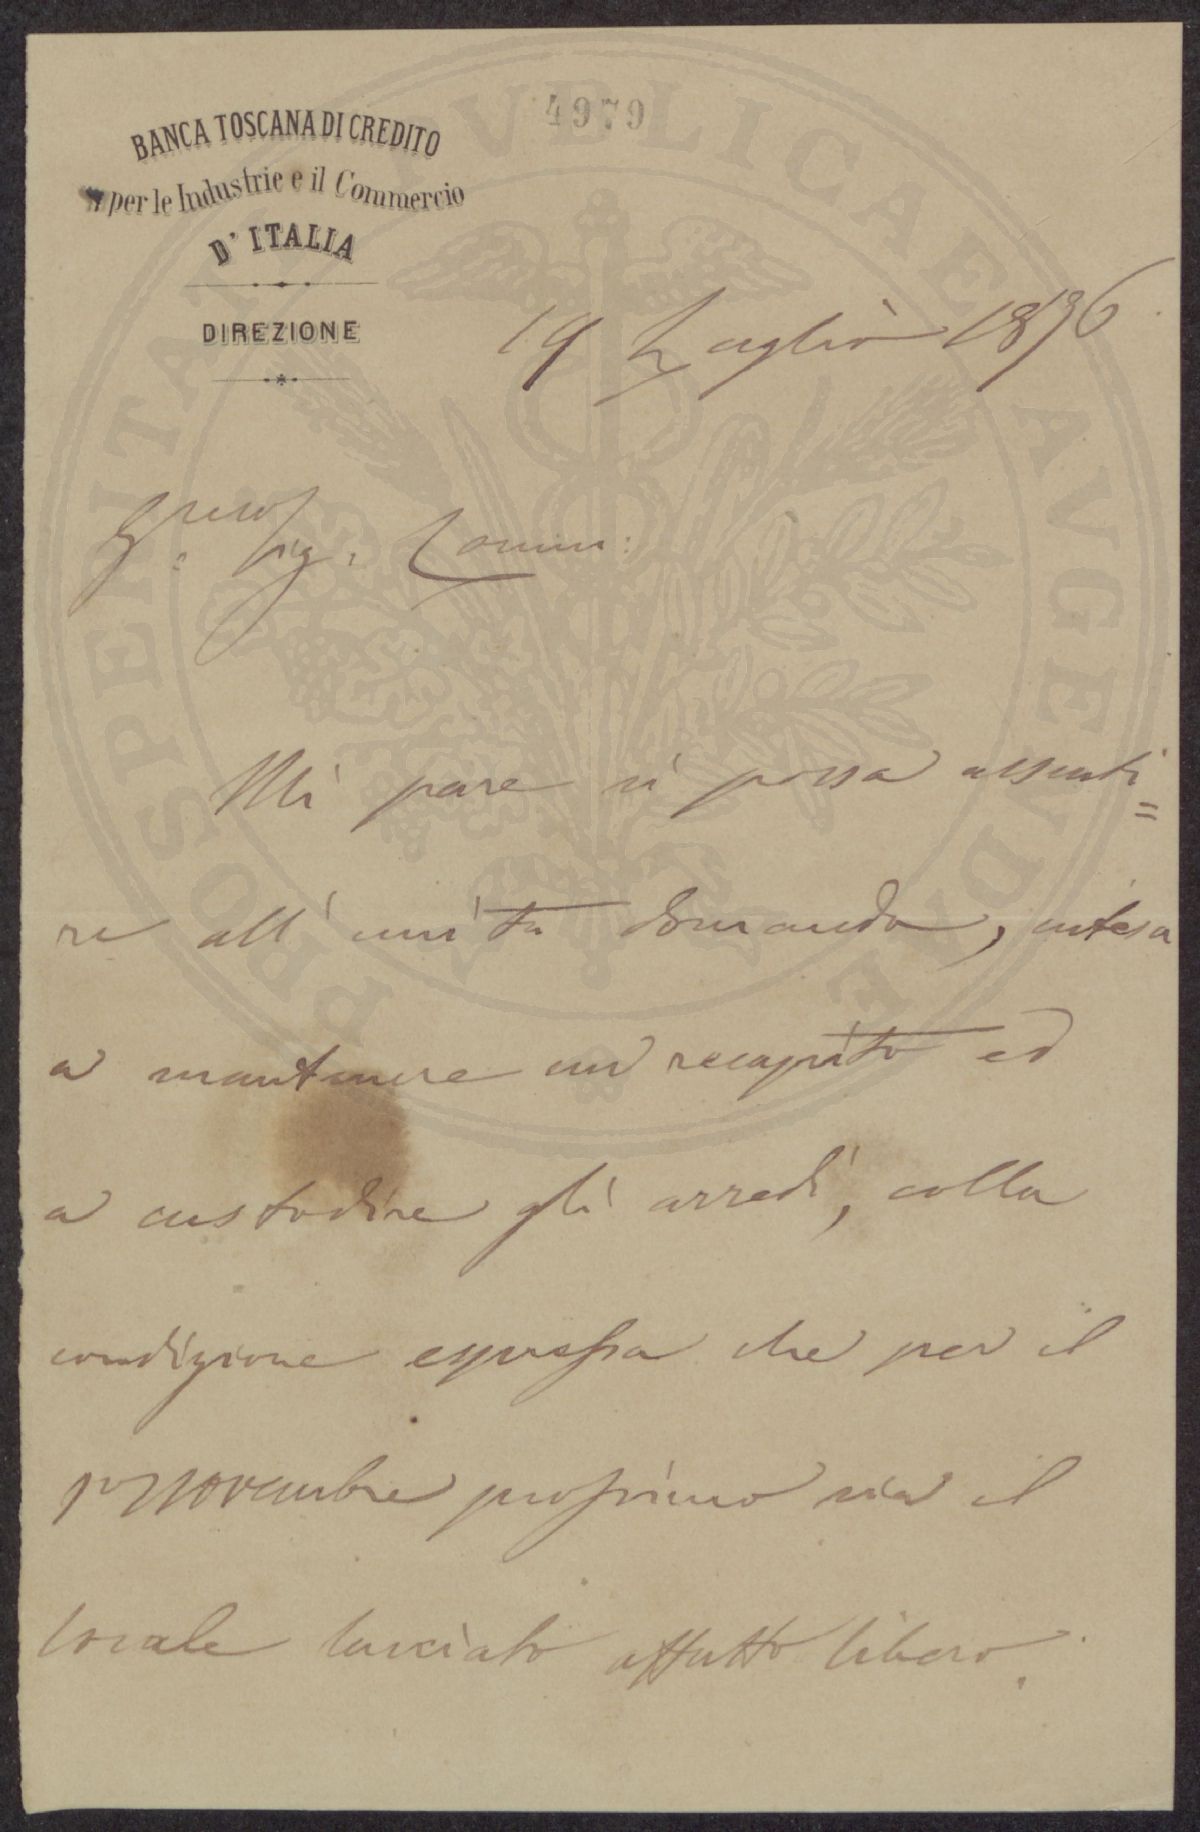 4979
BANCA TOSCANA DI CREDITO
per le Industrie e il Commercio
D'ITALIA
DIREZIONE
19 Luglio 1876
Sig. Comm:
Mi pare si possa assenti=
re all' unita domanda, intesa
a mantenere un recapito ed
a custodire gli arredi, colla
condizione espressa che per il
1° Novembre prossimo sia il
locale lasciato affatto libero.
PROSPERITATI PVBLICAE AVGENDAE